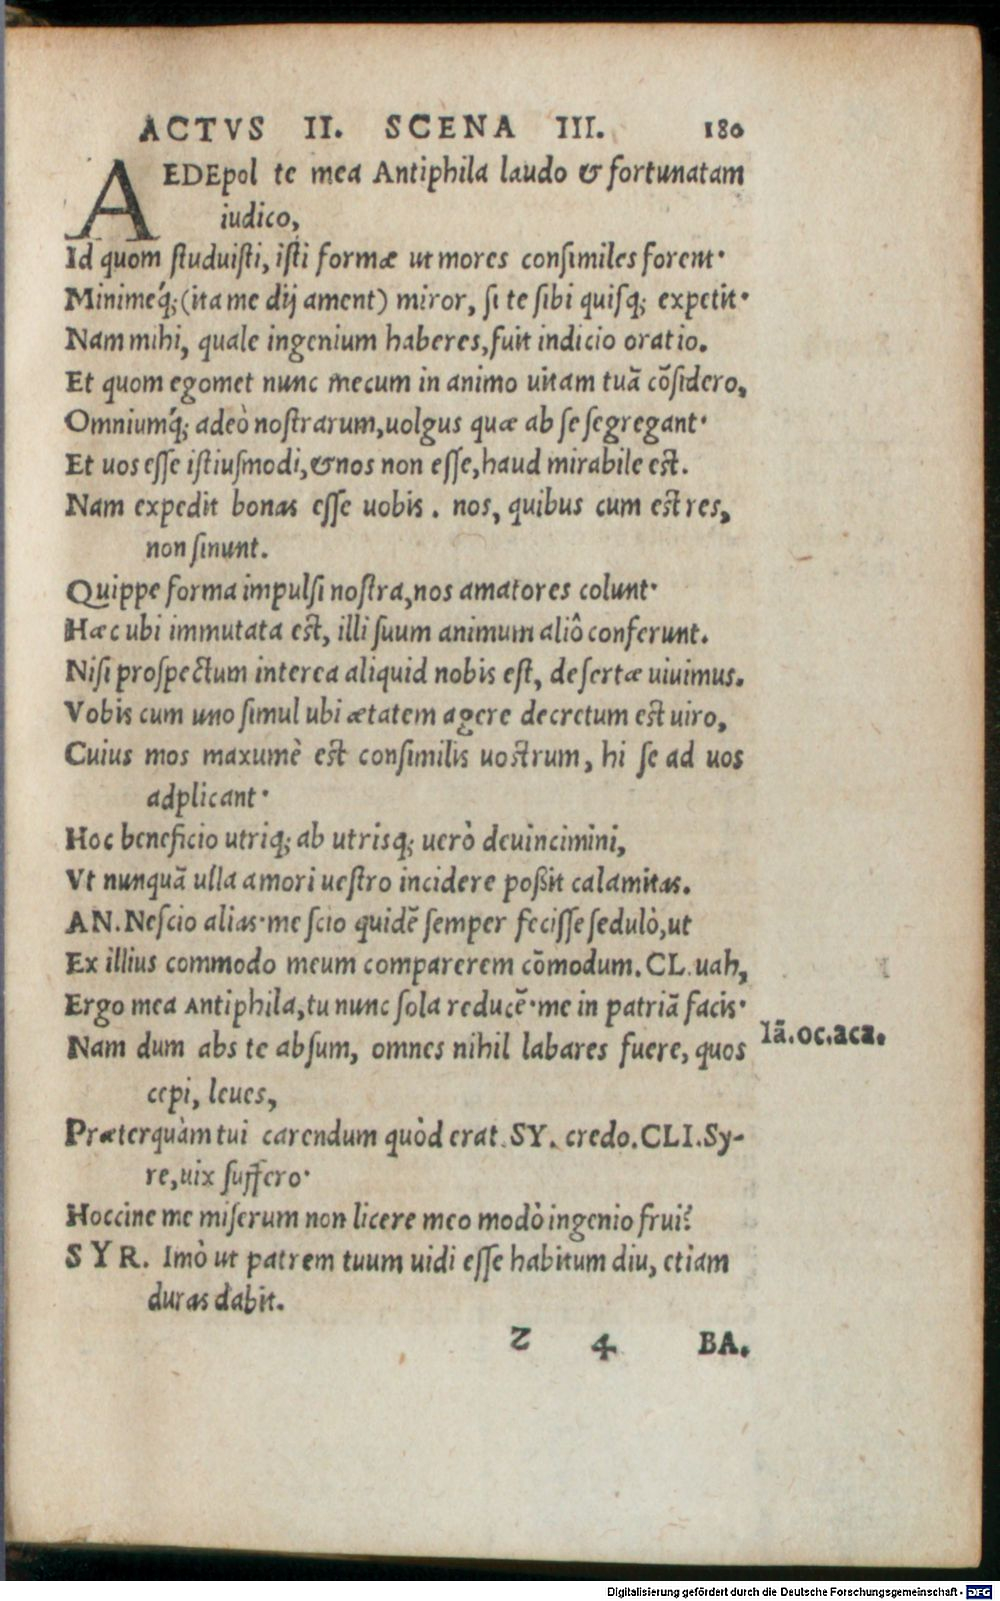 ACTVS II. SCENA III. 180
AEDEpol te mea Antiphila laudo & fortunatam
iudico,
Id quom ſtuduiſti, iſti formæ ut mores conſimiles forent·
Minimeq́;(ita me dij ament) miror, ſi te ſibi quiſq; expetit·
Nam mihi, quale ingenium haberes,fuit indicio oratio.
Et quom egomet nunc mecum in animo uitam tuā cōſidero,
Omniumq́; adeò noſtrarum,uolgus quæ ab ſe ſegregant·
Et uos eſſe iſtiuſmodi,& nos non eſſe,haud mirabile eſt.
Nam expedit bonas eſſe uobis . nos, quibus cum eſt res,
non ſinunt.
Quippe forma impulſi noſtra,nos amatores colunt·
Hæc ubi immutata eſt, illi ſuum animum aliô conferunt.
Niſi proſpectum interea aliquid nobis eſt, deſertæ uiuimus.
Vobis cum uno ſimul ubi ætatem agere decretum eſt uiro,
Cuius mos maxumè eſt conſimilis uoſtrum, hi ſe ad uos
adplicant·
Hoc beneficio utriq; ab utrisq; uerò deuincimini,
Vt nunquā ulla amori ueſtro incidere poßit calamitas.
AN.Neſcio alias·me ſcio quidē ſemper feciſſe ſedulò,ut
Ex illius commodo meum compararem cōmodum.CL.uah,
Ergo mea Antiphila,tu nunc ſola reducē·me in patriā facis·
Nam dum abs te abſum, omnes nihil labares fuere, quos
cepi, leues,
lā.oc.aca.
Præterquàm tui carendum quòd erat.SY. credo.CLI.Sy-
re,uix ſuffero·
Hoccine me miſerum non licere meo modò ingenio frui?
SYR. Imò ut patrem tuum uidi eſſe habitum diu, etiam
duras dabit.
z 4 BA.
Digitalisierung gefördert durch die Deutsche Forschungsgemeinschaft - DFG